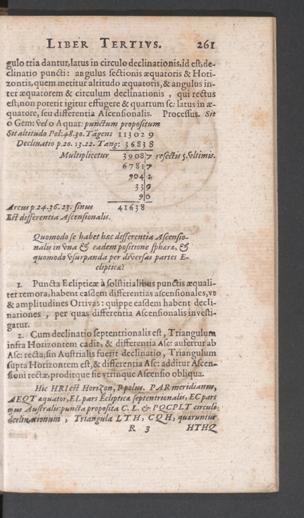 LIBER TERTIVS. 261
gulo tria dantur, latus in circulo declinationis, id est, de-
clinatio puncti: angulus sectionis æquatoris & Hori-
zontis, quem metitur altitudo æquatoris, & angulus in-
ter æquatorem & circulum declinationis, qui rectus
est, non poterit igitur effugere & quartum sc: latus in æ-
quatore, seu differentia Ascensionalis. Processus. Sit
o Gem: vel o Aquar: punctum propositum
Sit altitudo Pol: 48.30. Tãgens 113029
Declinatio p. 20. 13.22. Tang: 36838
Multiplicetur 39087 resectis 5. vltimis.
67817
9042
339
90
Arcus p. 24.36.23. sinus 41638
Est differentia Ascensionalis.
Quomodo se habet hæc differentia Ascensio-
nalis in vna & eadem positione sphæræ, &
quomodo vsurpanda per diversas partes E-
clipticæ?
1. Puncta Eclipticæ à solstitialibus punctis æquali-
ter remota, habent easdem differentias ascensionales, vt
& amplitudines Ortivas: quippe easdem habent decli-
nationes, per quas differentia Ascensionalis investi-
gatur.
2. Cum declinatio septentrionalis est, Triangulum
infra Horizontem cadit, & differentia Asc: aufertur ab
Asc: recta; sin Australis fuerit declinatio, Triangulum
supra Horizontem est, & differentia Asc: additur Ascen-
sioni rectæ, prodit que sic vtrinque Ascensio obliqua.
Hic HRI est Horizon, R polus. PAR meridianus,
AEQT æquator, EL pars Eclipticæ septentrionalis, EC pars
ejus Australis: puncta proposita C. L. & PQCPLT circuli
declinationum, Triangula LTH, CQH, quæruntur
R 3 HTHQ